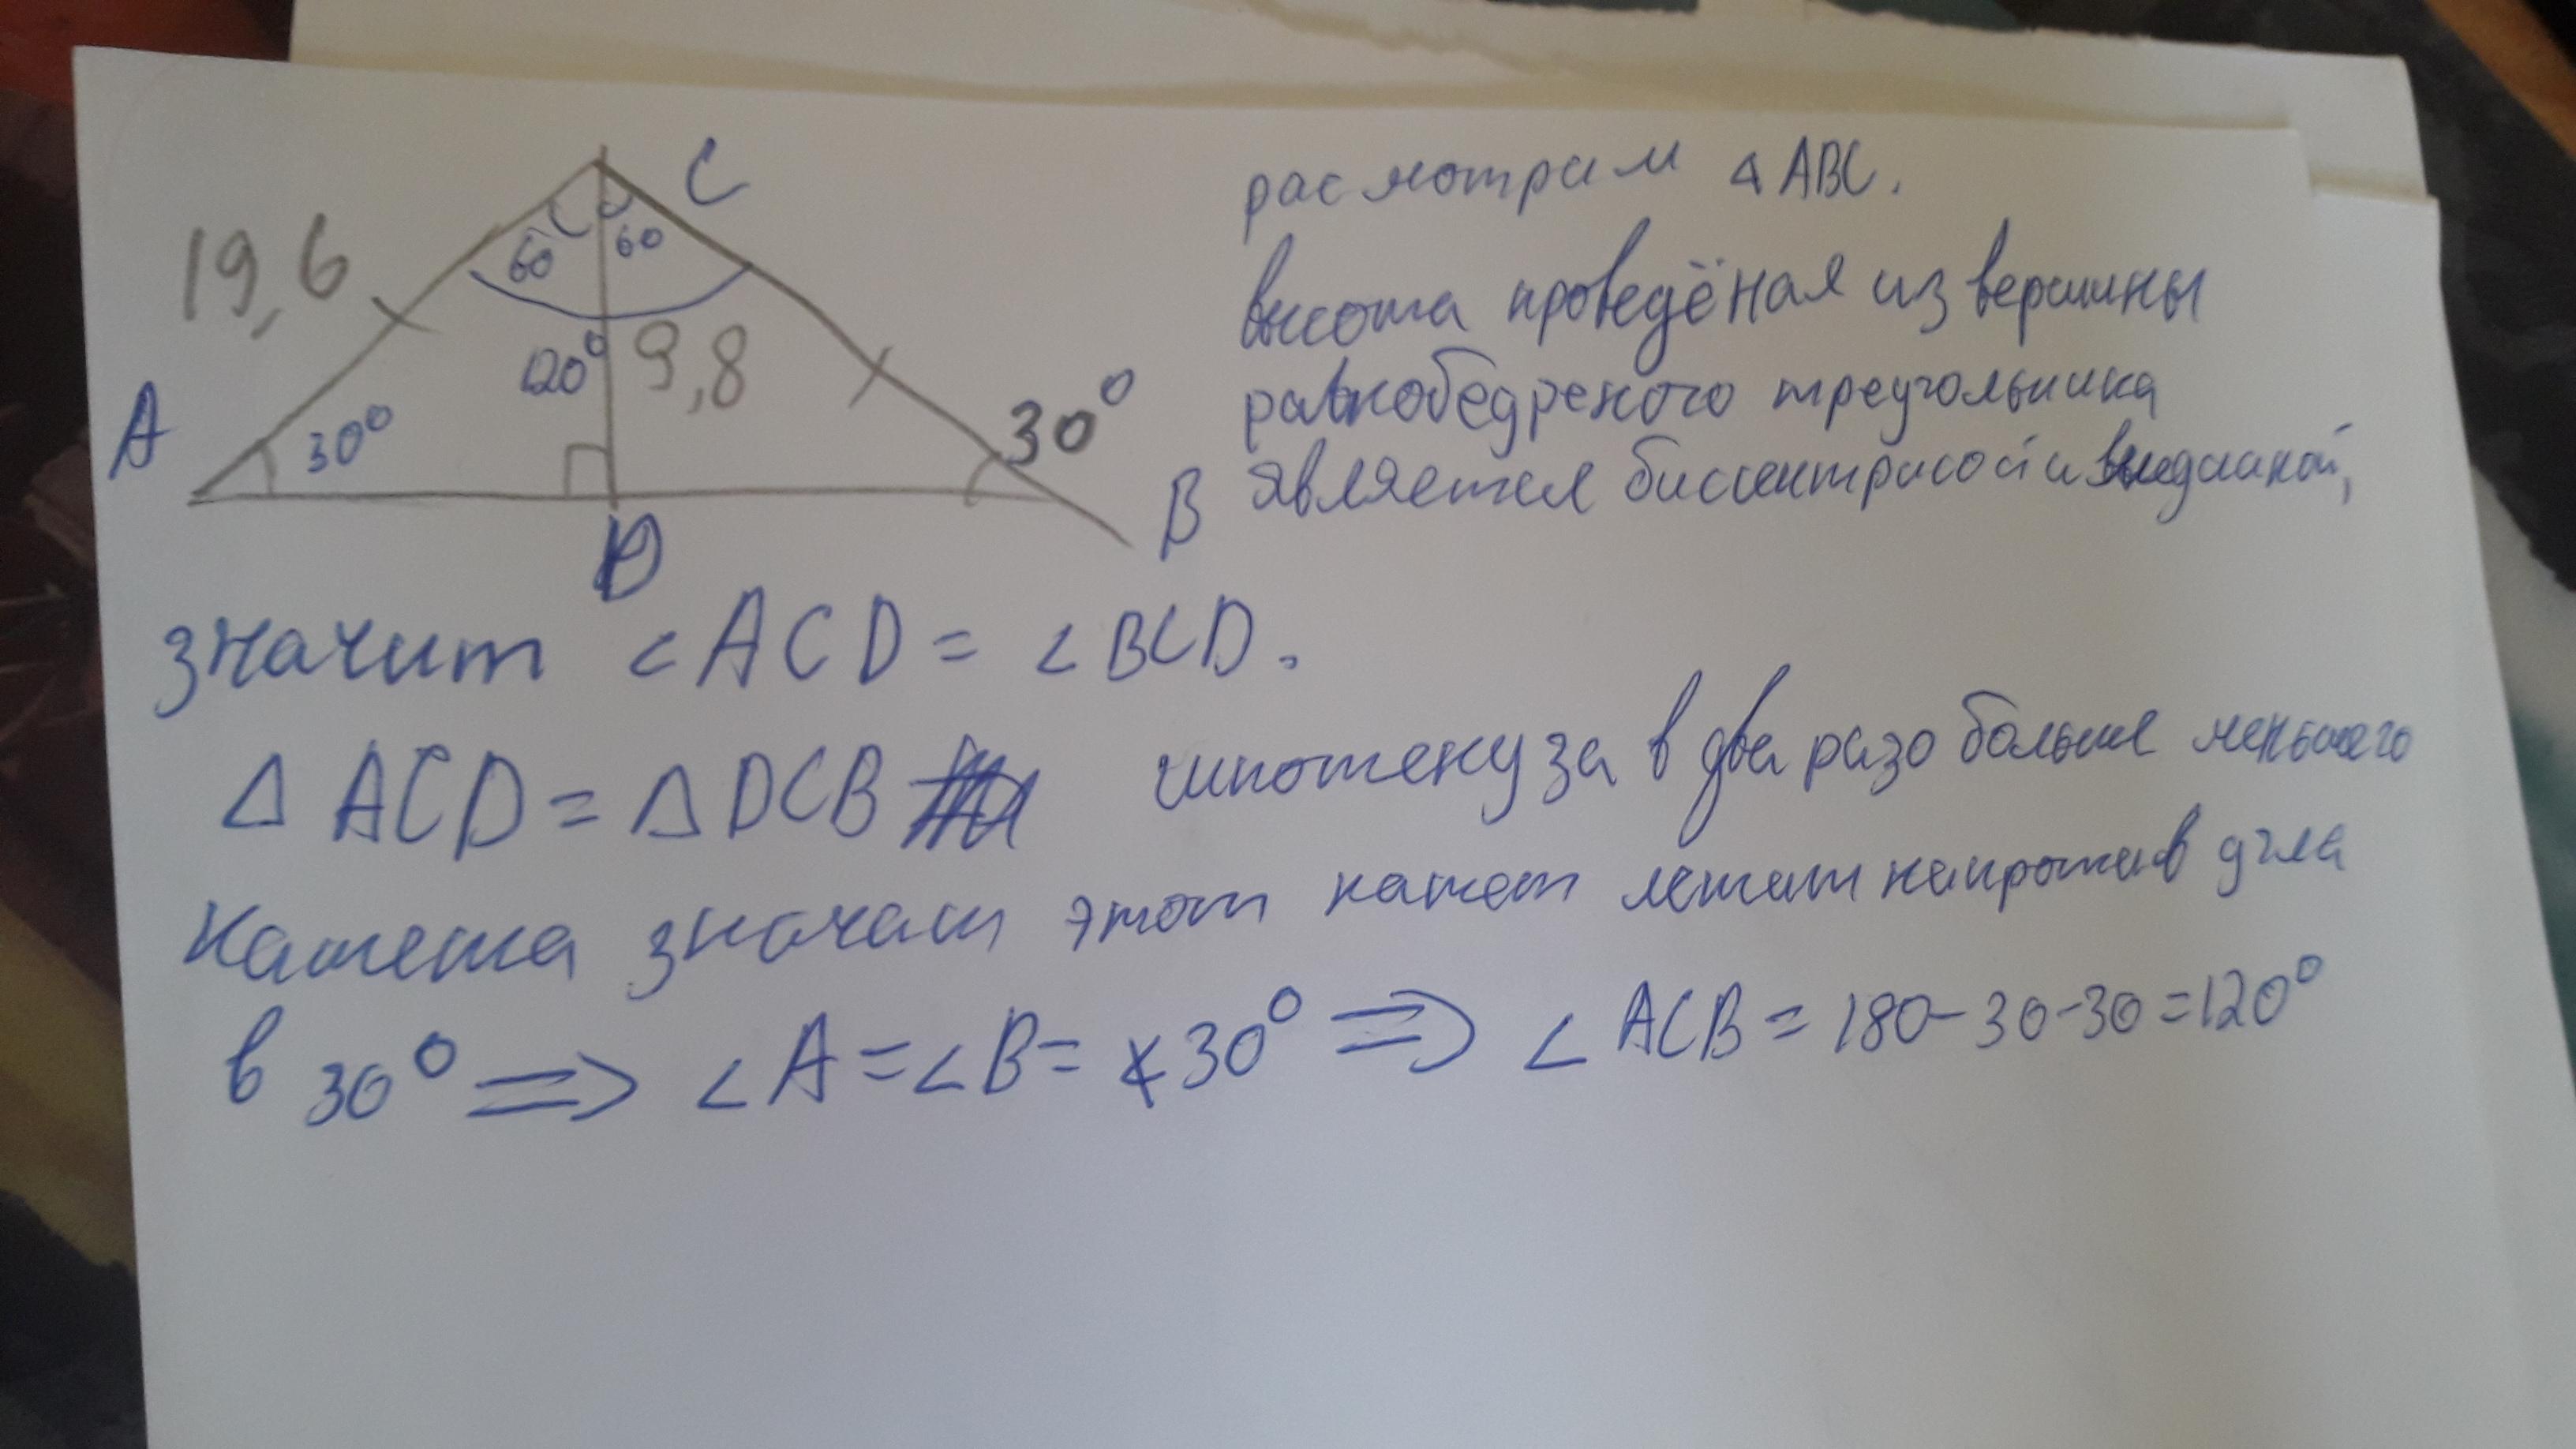 C
19,6
60 60
120° 9,8
A 30° 30°
B
D
расмотрим △ABC.
высота проведёная из вершины
равнобедреного треугольника
является биссектрисой и медианой,
значит ∠ACD = ∠BCD.
△ ACD = △ DCB гипотенуза в два разо больше меньшего
катета значит этот катет лежит напротив угла
в 30° ⇒ ∠A = ∠B = 30° ⇒ ∠ ACB = 180-30-30=120°